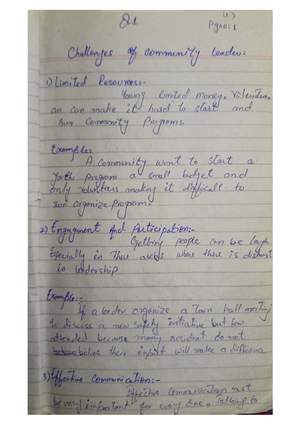 Q1
Pg no: 1
Challenges of community leader:
1) Limited Resources:-
Young limited money, Volunteers,
an can make it hard to start and
run Community Programs.
Examples
A community want to start a
youth program a small budget and
only volunteers making it difficult to
run organize program
2) Engagement and Participation:-
Getting people can be tough
Especially in those areas where there is distrust
in leadership.
Example:-
If a leader organize a town hall meeting
to discuss a new safety initiative but few
attended because many resident do not
believe their input will make a difference
3) Effective Communication:-
Effective communication must
be very important for every one. Talking to